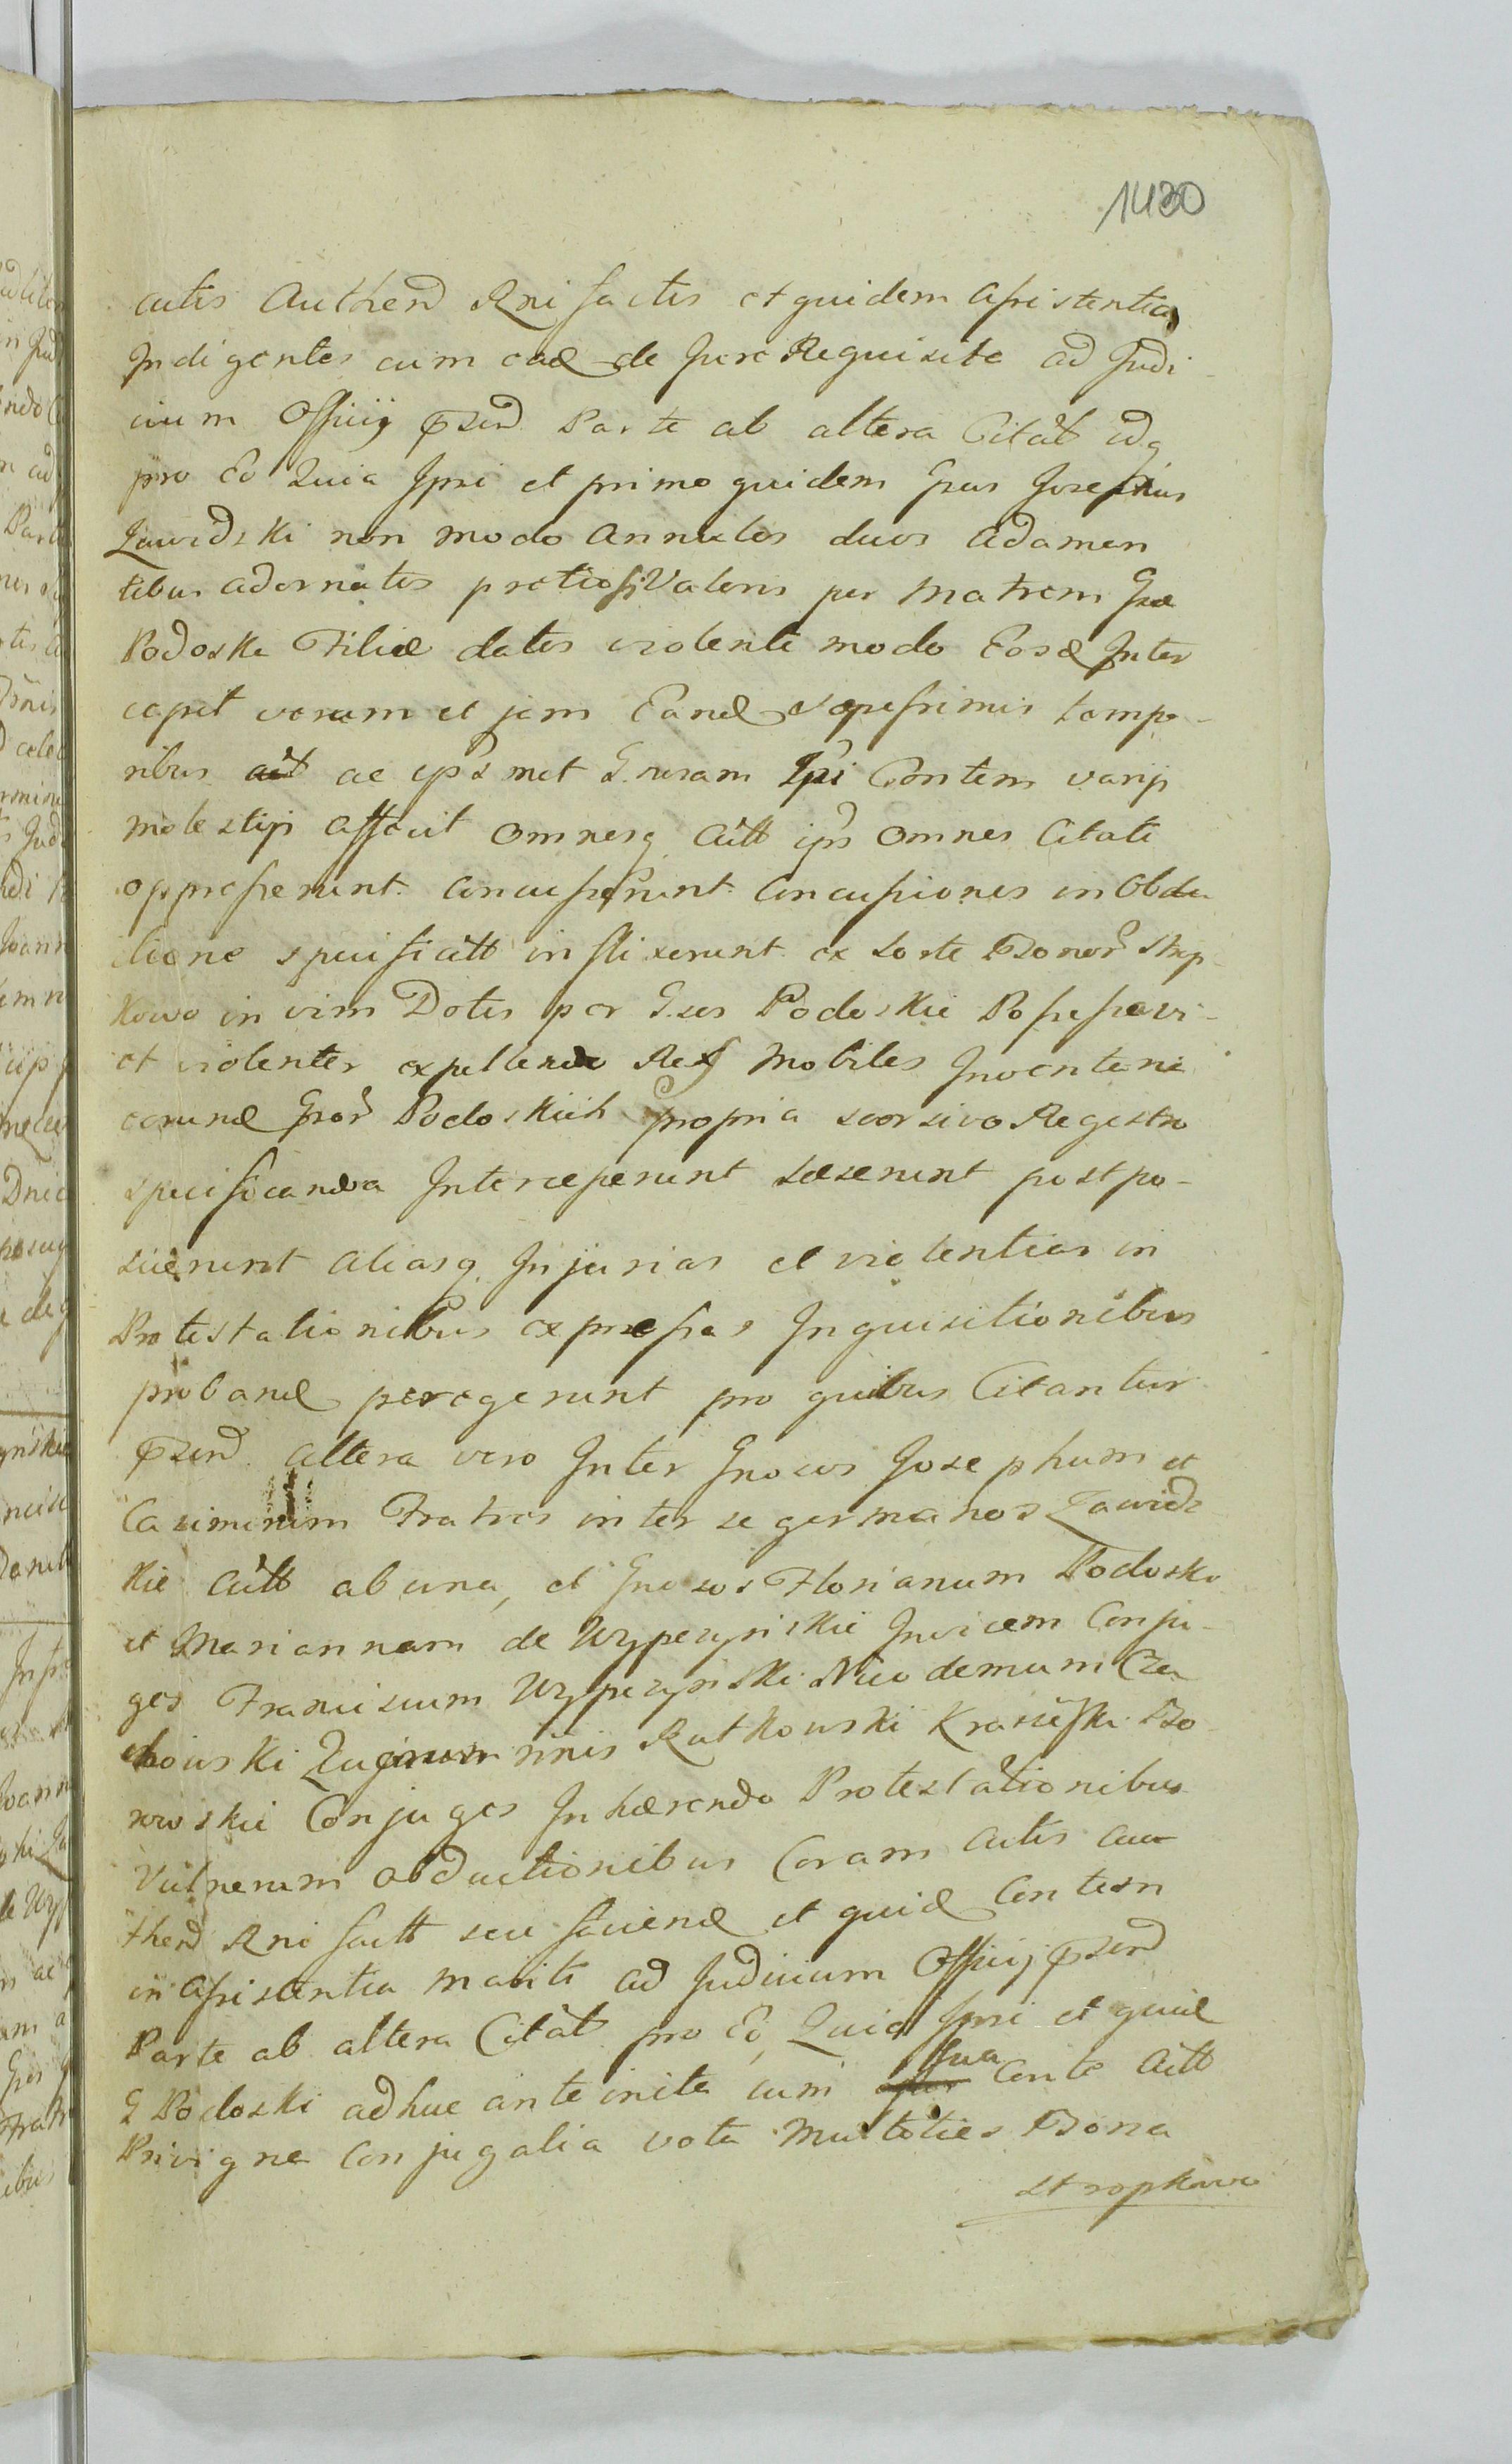 1430
actis Authend Rni factis et quidem Assistentia
Indigentes cum ead de Jure Requisita ad Judi
cium Officij pzend Parte ab altera Citat idq
pro Eo Quia Ipsi et primo quidem Gsus Josephus
Zawidzki non modo Annulos duos Adaman
tibus adornatos pretiosi Valoris per Matrem Gsa
Podoska Filiæ datos violenti modo Eosd Inter
cepit verum et jam Eand sæpissimis tempo-
ribus ac ips met G. uxoram Ipsi Contem varijs
molestijs affecit omnesq Citt ips omnes Citati
oppresserunt concusserunt Concussiones in Obdu
ctione specificatt inflixerunt ex Sorte Bonor Strop
kowo in vim Dotis per G.sos Podoskie Possessovi-
et violenter expellendo Resq Mobiles Inventaria
eorund Gsor Podoskich propria seorsivo Regestro
specificanda Interceperunt Læserunt postpo-
suerunt aliasq Injurias et violentias in
Protestationibus expressas Inquisitionibus
proband peregerunt pro quibus Citantur
pzend. Altera vero Inter Gnosos Josephum et
Casimirum Fratres inter se germanos Zawidz
kie Citt ab una, et Gnosos Florianum Podosk
et Mariannam de Wypczynskie Invicem Conju-
ges Franciscum Wypczynski Nicodemum Cze
chowski nnis Rutkowski Krasuski Bo
rowskie Conjuges Inhærendo Protestationibus
Vulnerum obductionibus Coram Actis Au
thend Rni factt seu faciend et quid Contem
in Assistentia Mariti ad Judicium Officij pzend
Parte ab altera Citat pro Eo, Quia Ipsi et quid
G Podoski adhuc ante inita cum sua Conte Citt
Privigna Conjugalia vota Multoties Bona
Stropkowo